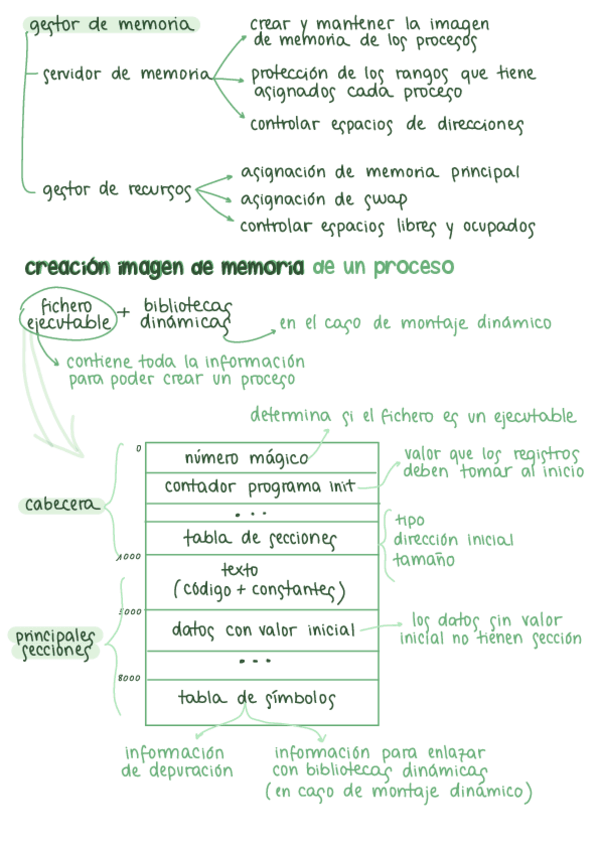 gestor de memoria
servidor de memoria
crear y mantener la imagen
de memoria de los procesos
protección de los rangos que tiene
asignados cada proceso
controlar espacios de direcciones
gestor de recursos
asignación de memoria principal
asignación de swap
controlar espacios libres y ocupados
creación imagen de memoria de un proceso
fichero
ejecutable
+ bibliotecas
dinámicas
en el caso de montaje dinámico
contiene toda la información
para poder crear un proceso
determina si el fichero es un ejecutable
0
número mágico
valor que los registros
deben tomar al inicio
contador programa init
cabecera
...
tabla de secciones
tipo
dirección inicial
tamaño
1000
texto
(código + constantes)
principales
secciones
datos con valor inicial
los datos sin valor
inicial no tienen sección
...
8000
tabla de símbolos
información
de depuración
información para enlazar
con bibliotecas dinámicas
(en caso de montaje dinámico)